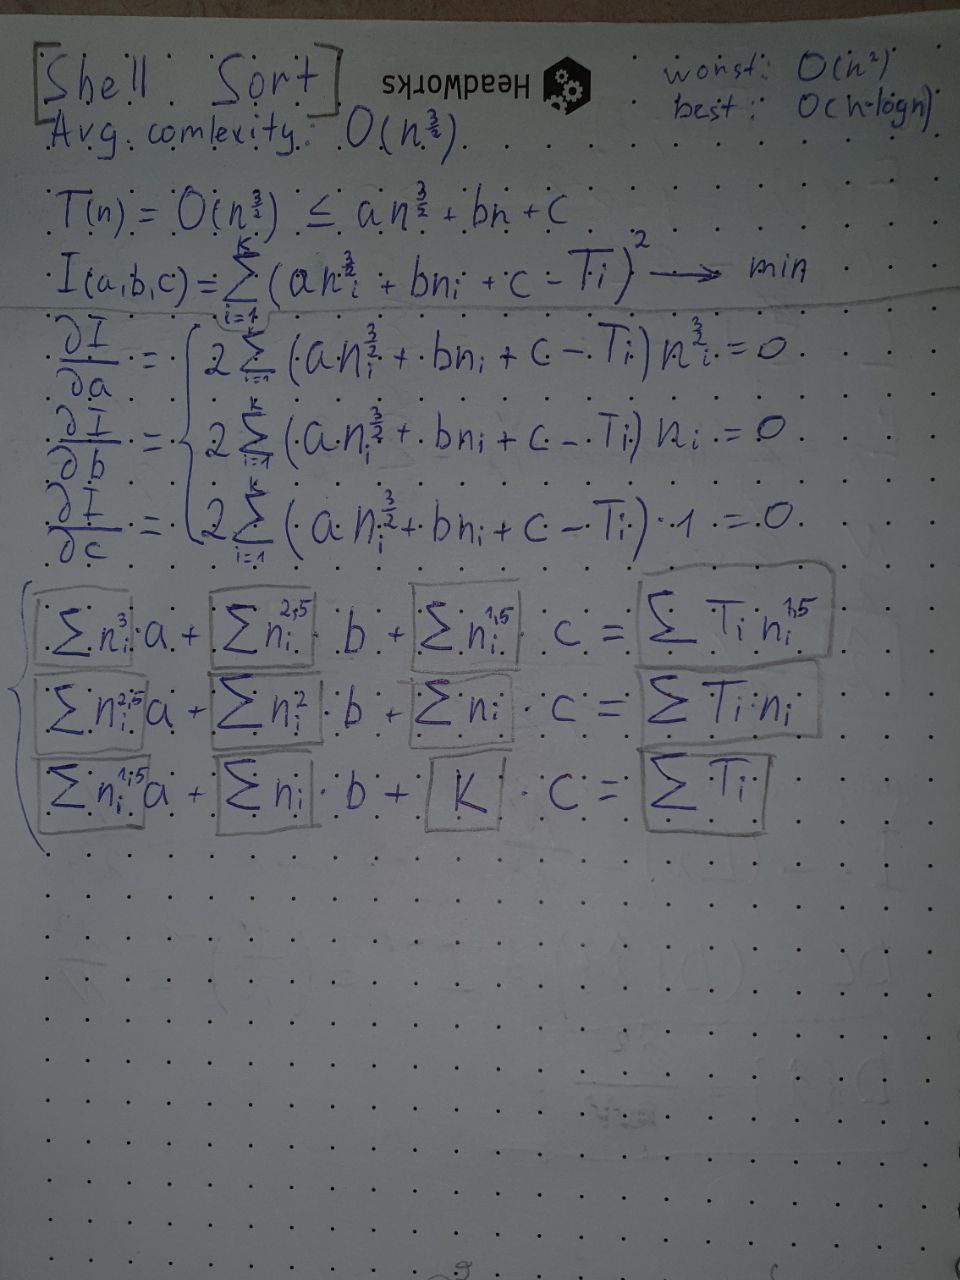 [Shell Sort]
HeadWorks
worst: O(n²)
best: O(n·logn)
Avg. comlexity: O(n^(3/2)).
T(n) = O(n^(3/2)) ≤ an^(3/2) + bn + c
I(a,b,c) = ∑_(i=1)^K (an_i^(3/2) + bn_i + c - T_i)² → min
∂I/∂a = { 2 ∑_(i=1)^K (an_i^(3/2) + bn_i + c - T_i) n_i^(3/2) = 0
∂I/∂b = { 2 ∑_(i=1)^K (an_i^(3/2) + bn_i + c - T_i) n_i = 0
∂I/∂c = { 2 ∑_(i=1)^K (an_i^(3/2) + bn_i + c - T_i) · 1 = 0
{ ∑ n_i^3 · a + ∑ n_i^2,5 · b + ∑ n_i^1,5 · c = ∑ T_i n_i^1,5
∑ n_i^2,5 a + ∑ n_i^2 · b + ∑ n_i · c = ∑ T_i · n_i
∑ n_i^1,5 a + ∑ n_i · b + K · c = ∑ T_i